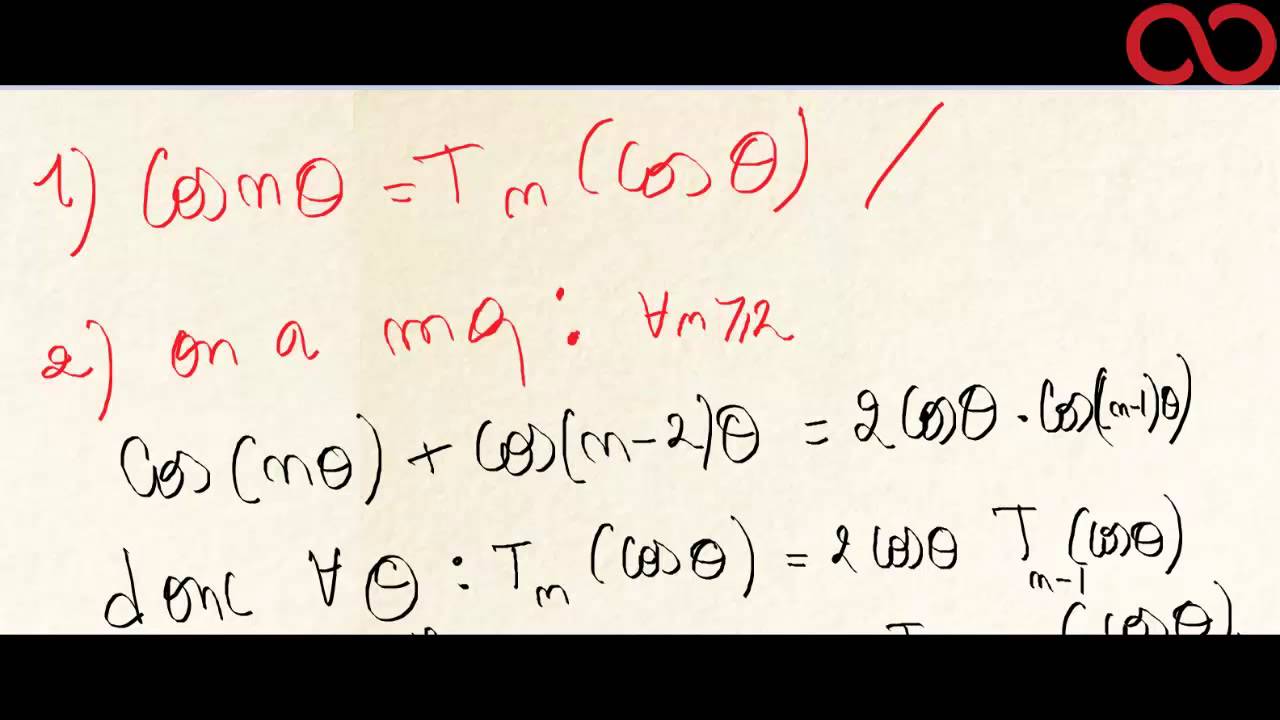 1) Cos nθ = T n (Cos θ) /
2) on a mq : ∀n ⩾ 2
Cos(nθ) + Cos(n-2)θ = 2 Cosθ . Cos((n-1)θ)
donc ∀ θ : T n (Cosθ) = 2 Cosθ T n-1 (Cosθ)
T (Cosθ)